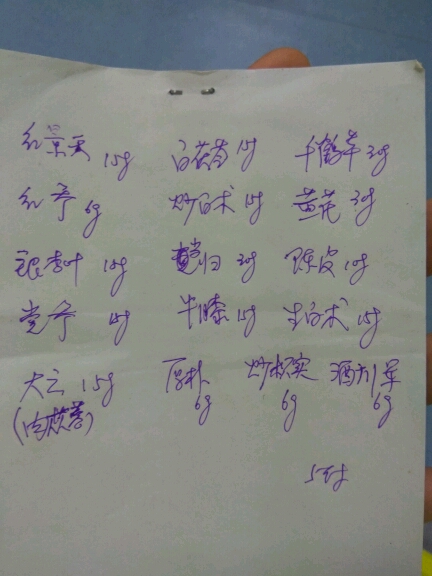 红景天 15g 白芍 15g 千鹤草 30g
红参 6g 炒白术 15g 黄芪 30g
银杏叶 10g 当归 30g 陈皮 10g
党参 15g 牛膝 15g 生白术 15g
大云 15g 厚朴 6g 炒枳实 6g 酒川军 6g
(肉苁蓉)
5付